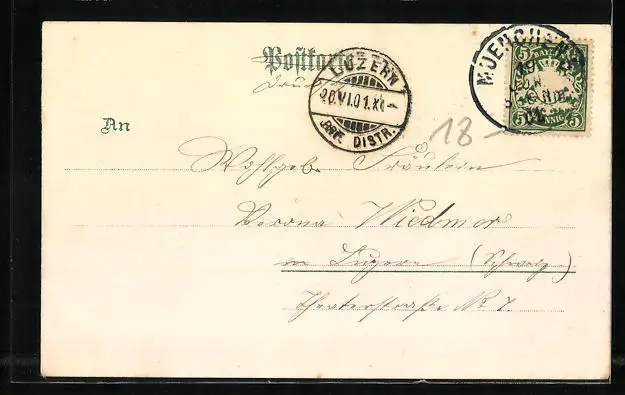 Postkarte
Druck
LUZERN
20.VI.01.XI
BRF. DISTR.
MUENCHEN
19
5 BAYERN 5
5 PFENNIG 5
18-
An
Wohlgeb. Fräulein
Verona Wiedmer
in Luzern (Schweiz)
Theaterstraße No 7.